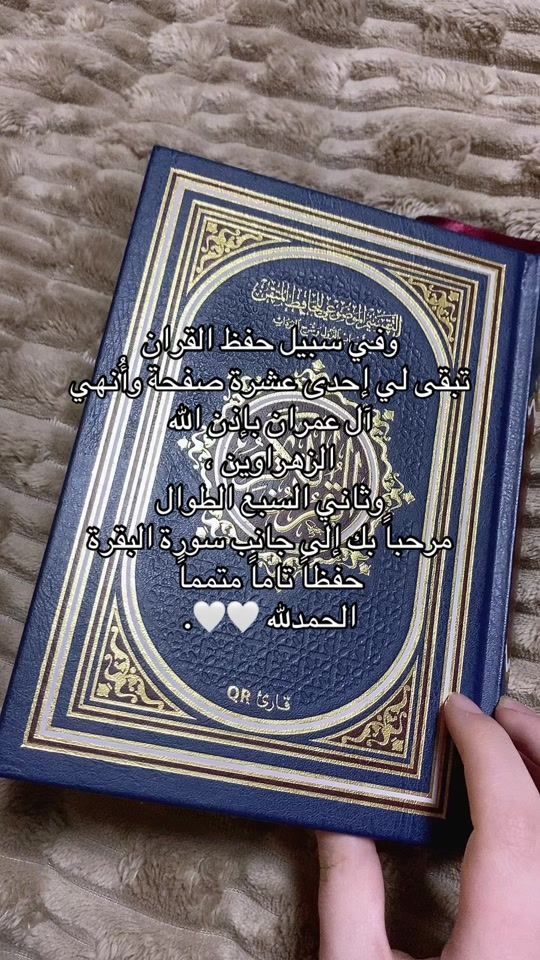 التقسيم الموضوعي للحافظ المتقن
وفي سبيل حفظ القران
تبقى لي إحدى عشرة صفحة وأُنهي
آل عمران بإذن الله
الزهراوين ،
وثاني السبع الطوال
مرحباً بك إلى جانب سورة البقرة
حفظاً تاماً متمماً
الحمدلله 🤍🤍 .
قارئ QR